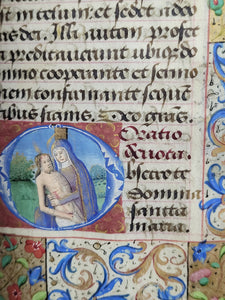 est in celum: et sedet a dex
tris dei. Illi autem profec
ti predicauerunt ubiq3 do
mino cooperante et sermo
nem confirmante sequen
tibus signis. Deo gr̄as.
Oratio
deuota.
bsecro te
Domina
sancta
maria.